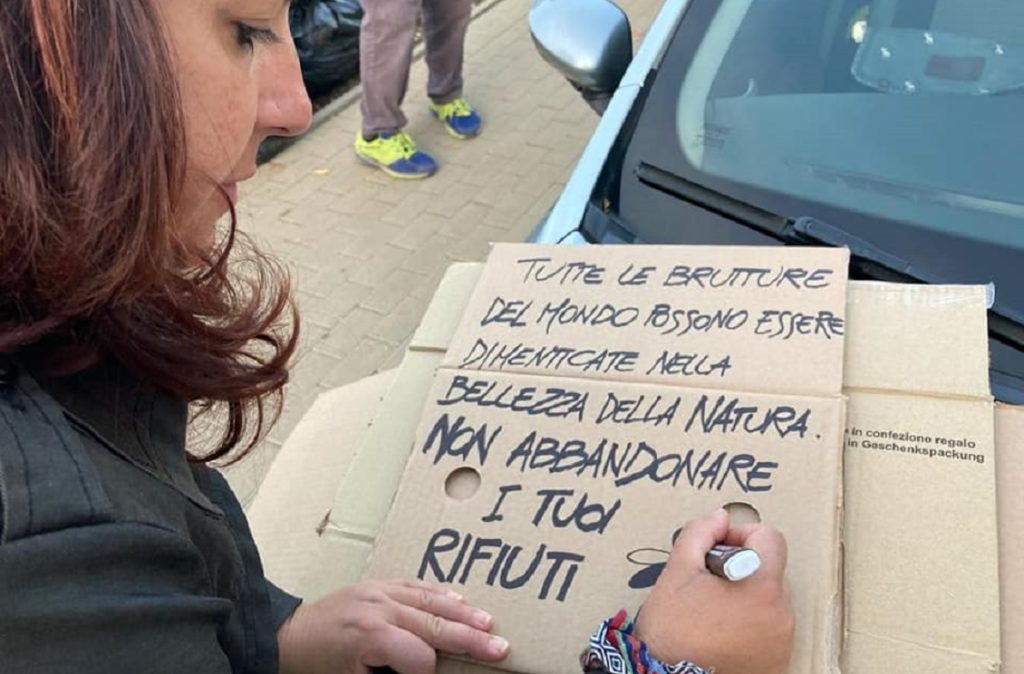 TUTTE LE BRUTTURE
DEL MONDO POSSONO ESSERE
DIMENTICATE NELLA
BELLEZZA DELLA NATURA.
NON ABBANDONARE
I TUOI
RIFIUTI
in confezione regalo
in Geschenkspackung